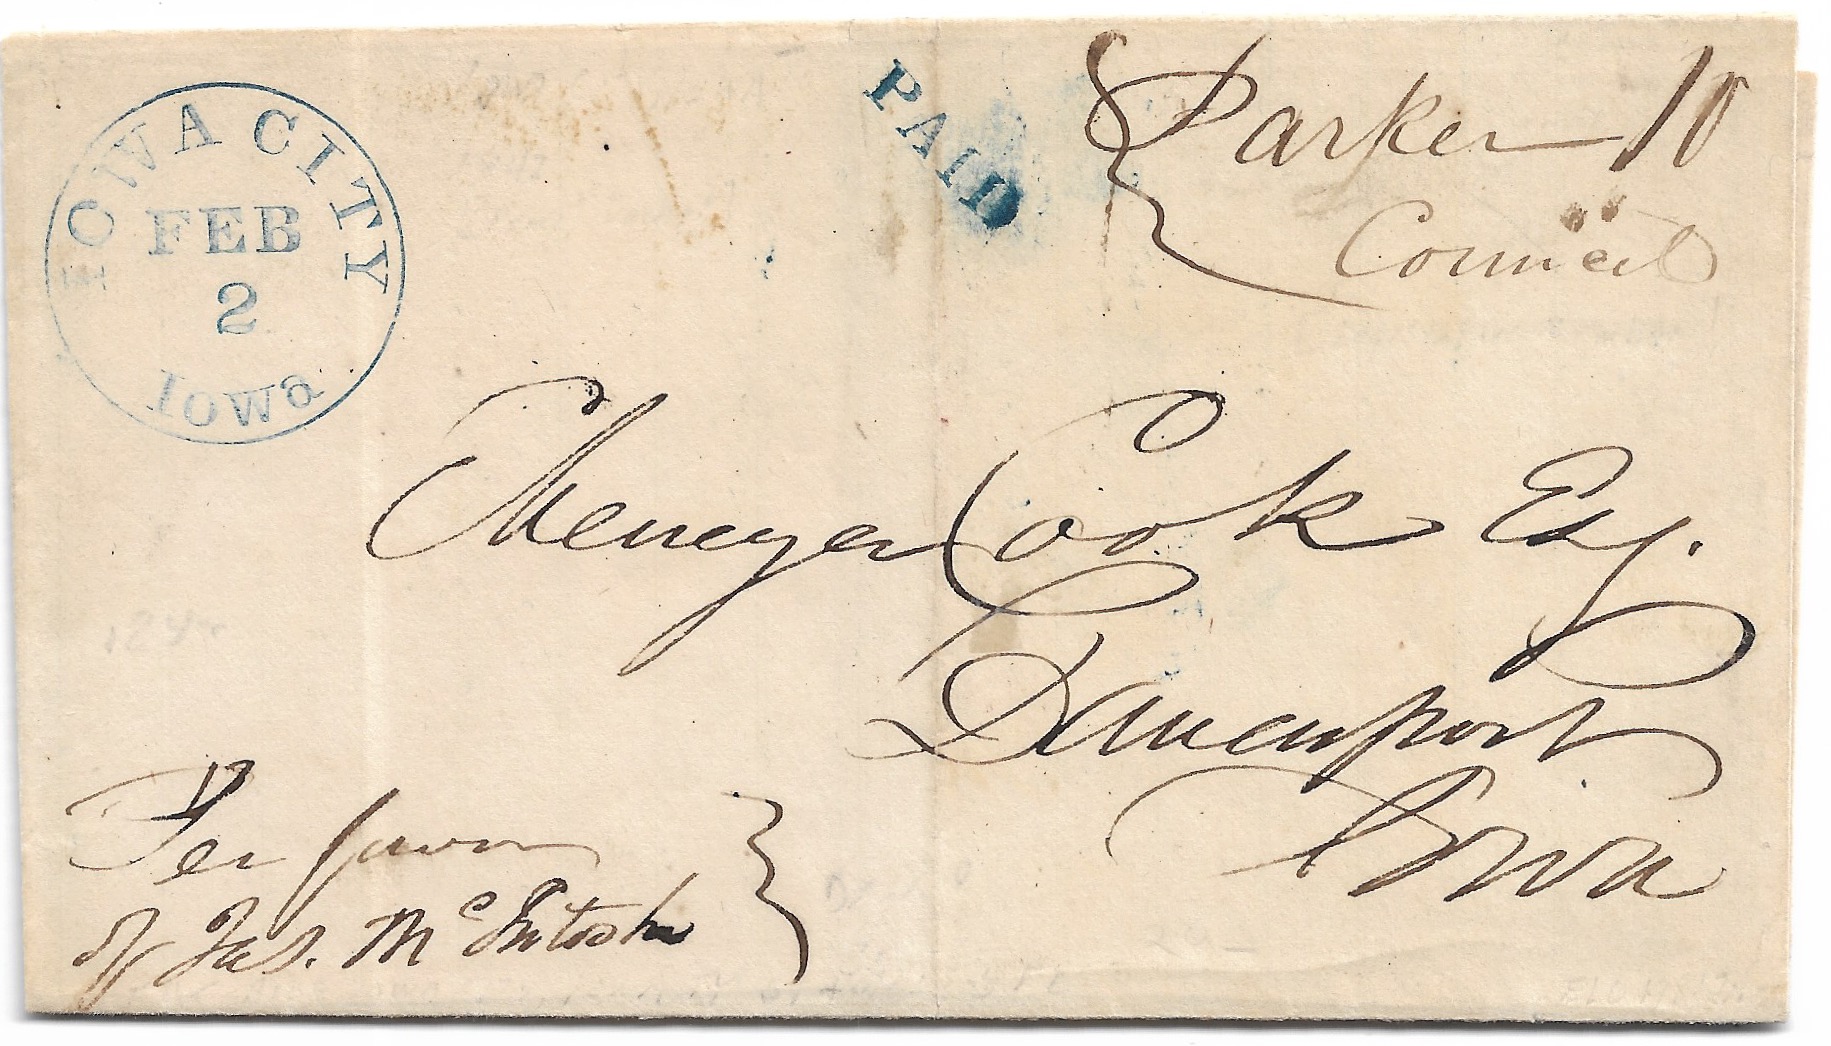 IOWA CITY
FEB
2
Iowa
PAID
Parker 10
Council
Ebenezer Cook Esq.
Davenport
Iowa
Per favor
of Jas. McIntosh